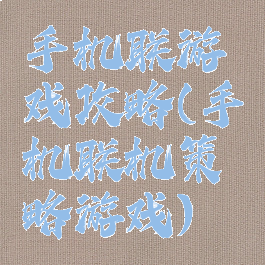 手机联游
戏攻略(手
机联机策
略游戏)